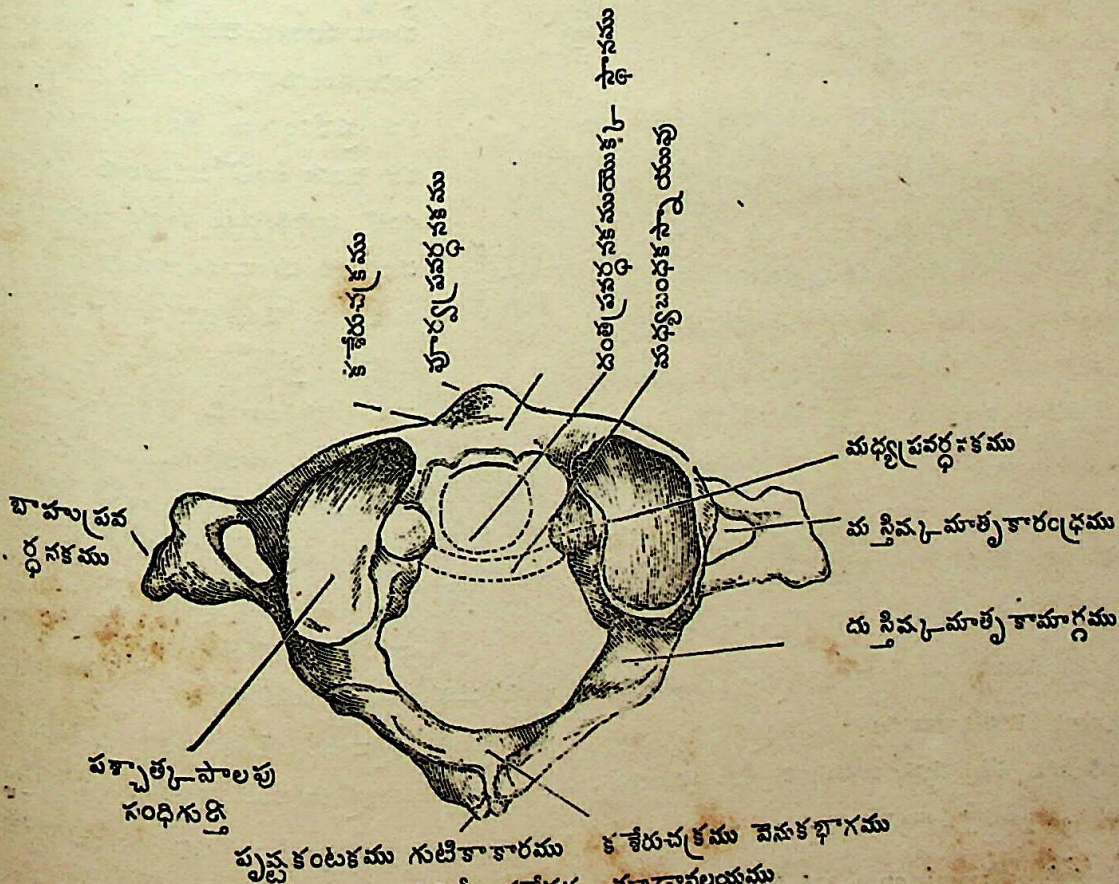 కశేరుచక్రము
పూర్వప్రవర్ధనకము
దంతప్రవర్ధనకముయొక్క స్థానము
మధ్యబంధకస్నాయువు
మధ్యప్రవర్ధనకము
బాహుప్రవ
ర్ధనకము
మస్తిష్క-మాతృకారంధ్రము
దుస్తిష్క-మాతృకామార్గము
పశ్చాత్క-పాలపు
సంధిగుర్తి
పృష్టకంటకము గుటికాకారము
కశేరుచక్రము వెనుకభాగము